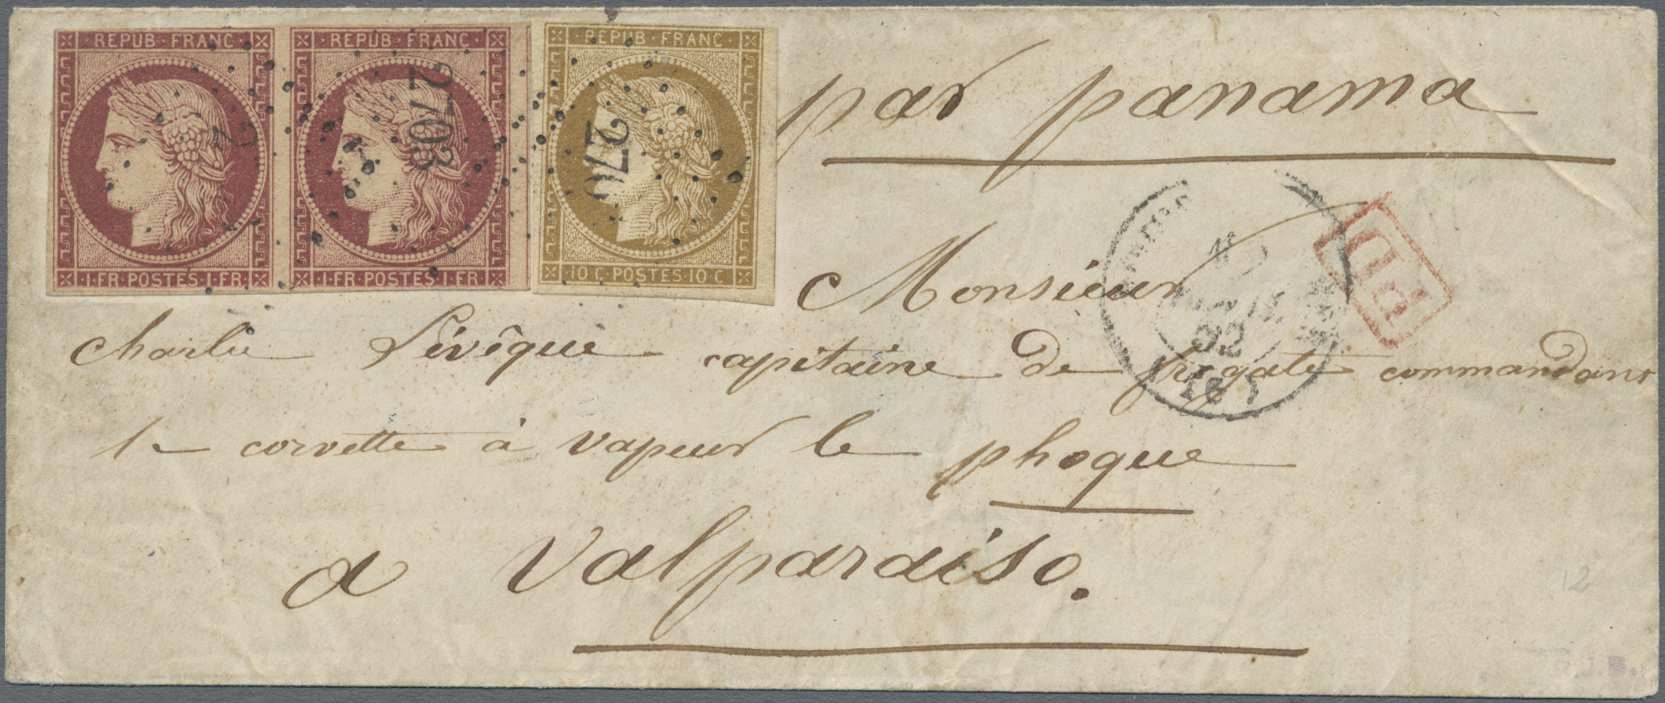 REPUB FRANC
1·FR·POSTES·1·FR
REPUB·FRANC
1·FR·POSTES·1·FR
REPUB·FRANC
10·C·POSTES·10·C
2
2703
270
par panama
PD
52
Monsieur
Charlie Lévêque capitaine de frégate commandant
la corvette à vapeur le phoque
a Valparaiso.
12